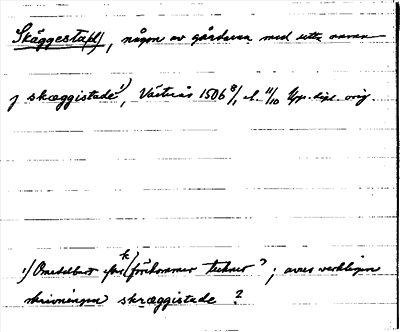 Skäggesta(d), någon av gårdarna med detta namn
j skæggistade¹), Västerås 1506 8/1 el. 11/10 Upp. dipl. orig.
¹) Omedelbart efter k förekommer tecknet ?; avses verkligen
skrivningen skræggistade ?